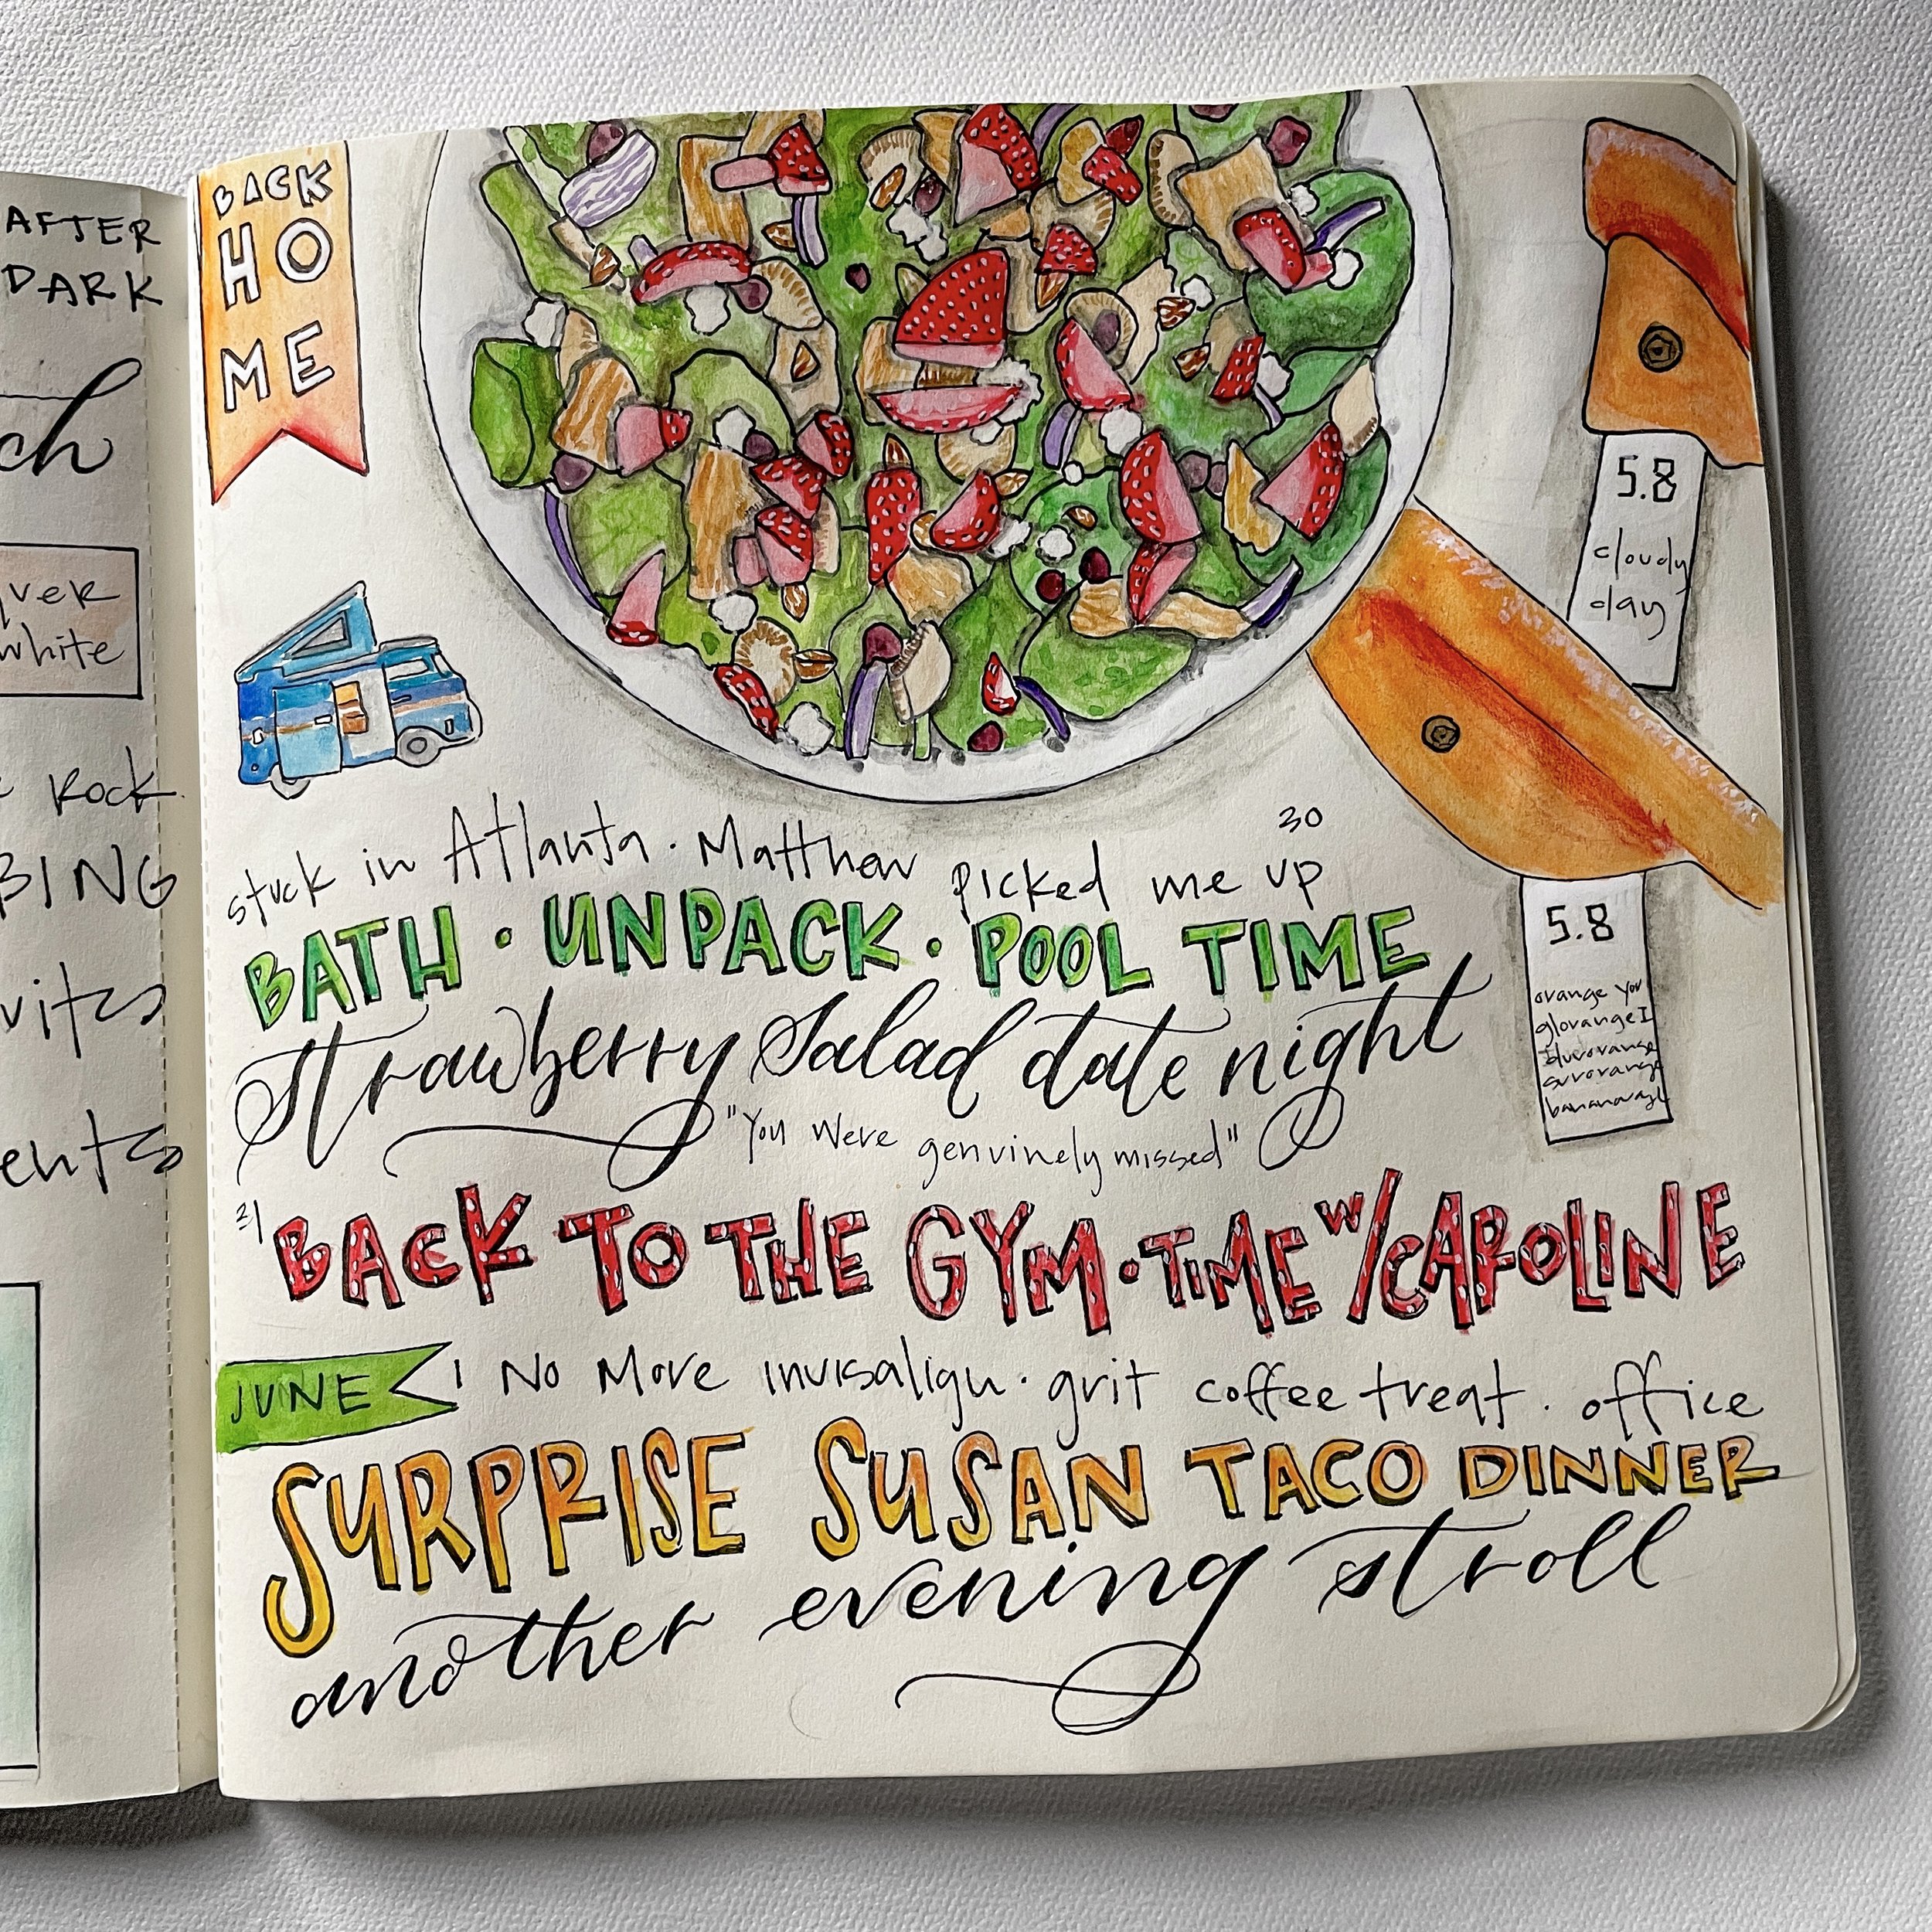 AFTER
DARK
ch
ver
white
Rock
BING
vites
ents
BACK
HO
ME
5.8
cloudy
day
5.8
orange you
glorange I
bananarange
30
stuck in Atlanta · Matthew picked me up
BATH · UNPACK · POOL TIME
strawberry salad date night
"You were genuinely missed"
31
BACK TO THE GYM · TIME W/CAROLINE
JUNE 1 No More invisalign · grit coffee treat · office
SURPRISE SUSAN TACO DINNER
another evening stroll